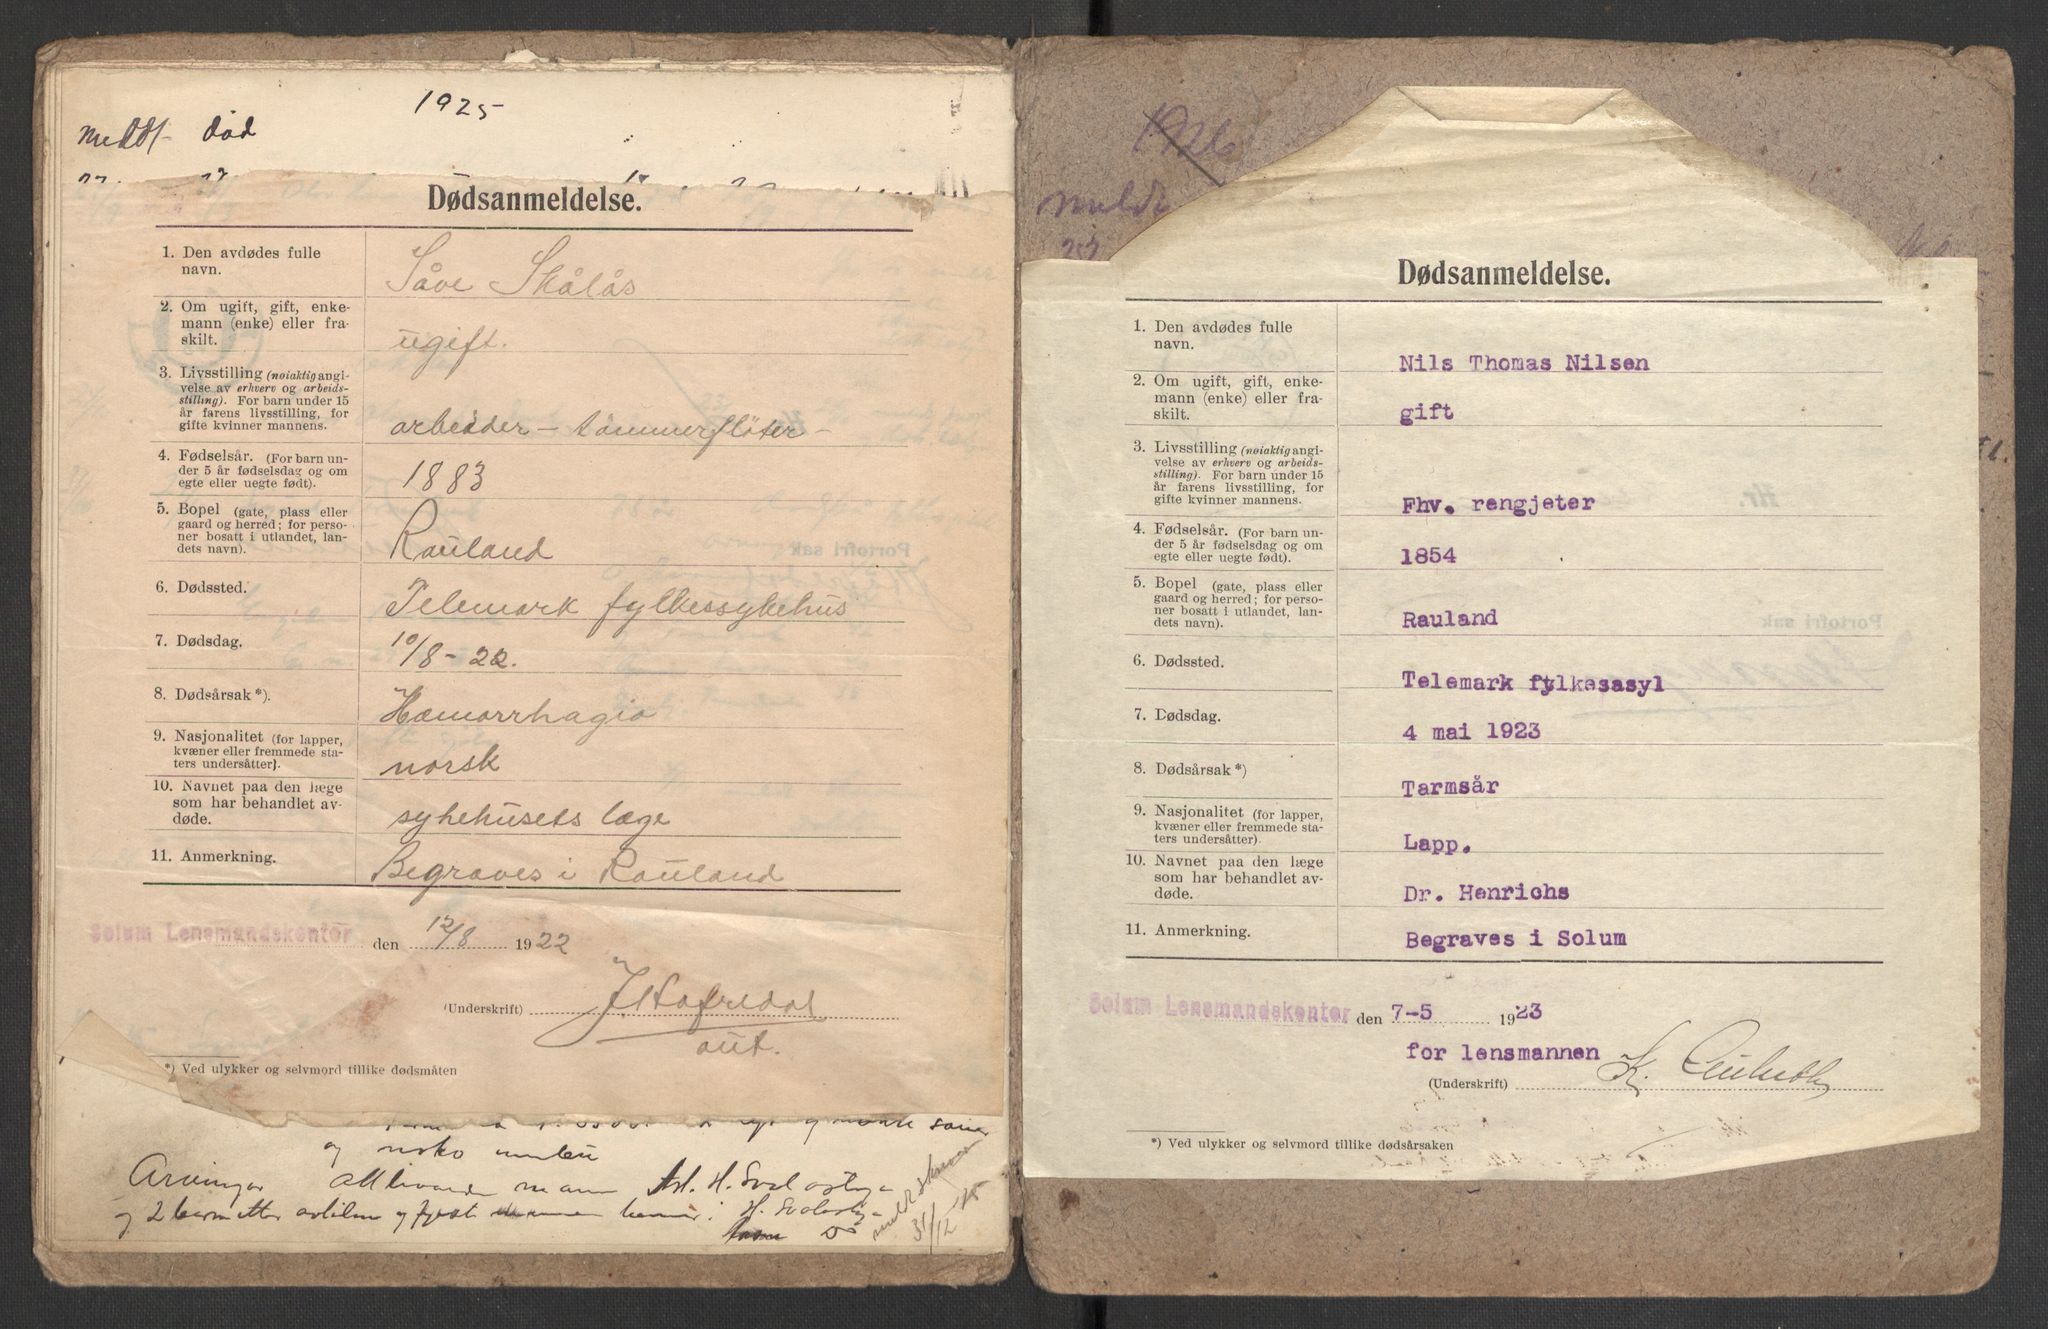 1925
meldt død
Dødsanmeldelse.
1. Den avdødes fulle
navn.
Såve Skålås
2. Om ugift, gift, enke-
mann (enke) eller fra-
skilt.
ugift.
3. Livsstilling (nøiaktig angi-
velse av erhverv og arbeids-
stilling). For barn under 15
år farens livsstilling, for
gifte kvinner mannens.
arbeider - tömmerflöter -
4. Fødselsår. (For barn un-
der 5 år fødselsdag og om
egte eller uegte født).
1883
5. Bopel (gate, plass eller
gaard og herred; for perso-
ner bosatt i utlandet, lan-
dets navn).
Rauland
6. Dødssted.
Telemark fylkessykehus
7. Dødsdag.
10/8-22.
8. Dødsårsak*).
Hæmorrhagia
9. Nasjonalitet (for lapper,
kvæner eller fremmede sta-
ters undersåtter).
norsk
10. Navnet paa den læge
som har behandlet av-
døde.
sykehusets læge
11. Anmerkning.
Begraves i Rauland
Solum Lensmandskontor den 12/8 1922
(Underskrift) J. Hafredal
aut.
*) Ved ulykker og selvmord tillike dødsmåten
og noko
Arvingar attlivande mann H.
og 2 born etter
meld skrivar
31/12 25
1926
meldt
Dødsanmeldelse.
1. Den avdødes fulle
navn.
Nils Thomas Nilsen
2. Om ugift, gift, enke-
mann (enke) eller fra-
skilt.
gift
3. Livsstilling (nøiaktig angi-
velse av erhverv og arbeids-
stilling). For barn under 15
år farens livsstilling, for
gifte kvinner mannens.
Fhv. rengjeter
4. Fødselsår. (For barn un-
der 5 år fødselsdag og om
egte eller uegte født).
1854
5. Bopel (gate, plass eller
gaard og herred; for perso-
ner bosatt i utlandet, lan-
dets navn).
Rauland
6. Dødssted.
Telemark fylkesasyl
7. Dødsdag.
4 mai 1923
8. Dødsårsak*)
Tarmsår
9. Nasjonalitet (for lapper,
kvæner eller fremmede sta-
ters undersåtter)
Lapp.
10. Navnet paa den læge
som har behandlet av-
døde.
Dr. Henrichs
11. Anmerkning.
Begraves i Solum
Solum Lensmandskontor den 7-5 1923
for lensmannen
(Underskrift) K.
*) Ved ulykker og selvmord tillike dødsårsaken